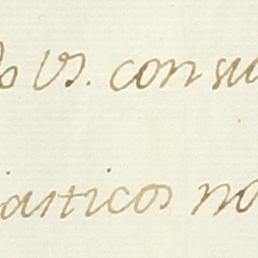 o V. consu
iasticos no